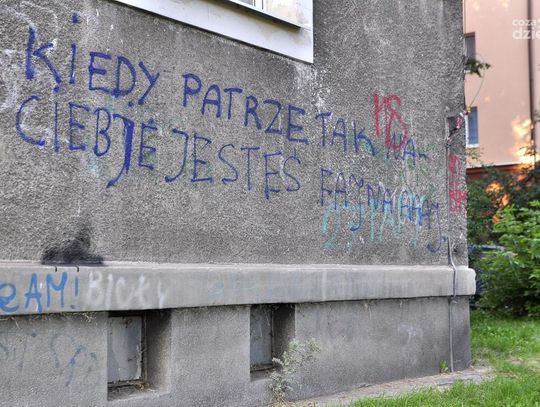 KiEDY PATRZE TAK NA
CIEBJE JESTEŚ FAJNA
ZAM! BIOŁY
cozay
dzie